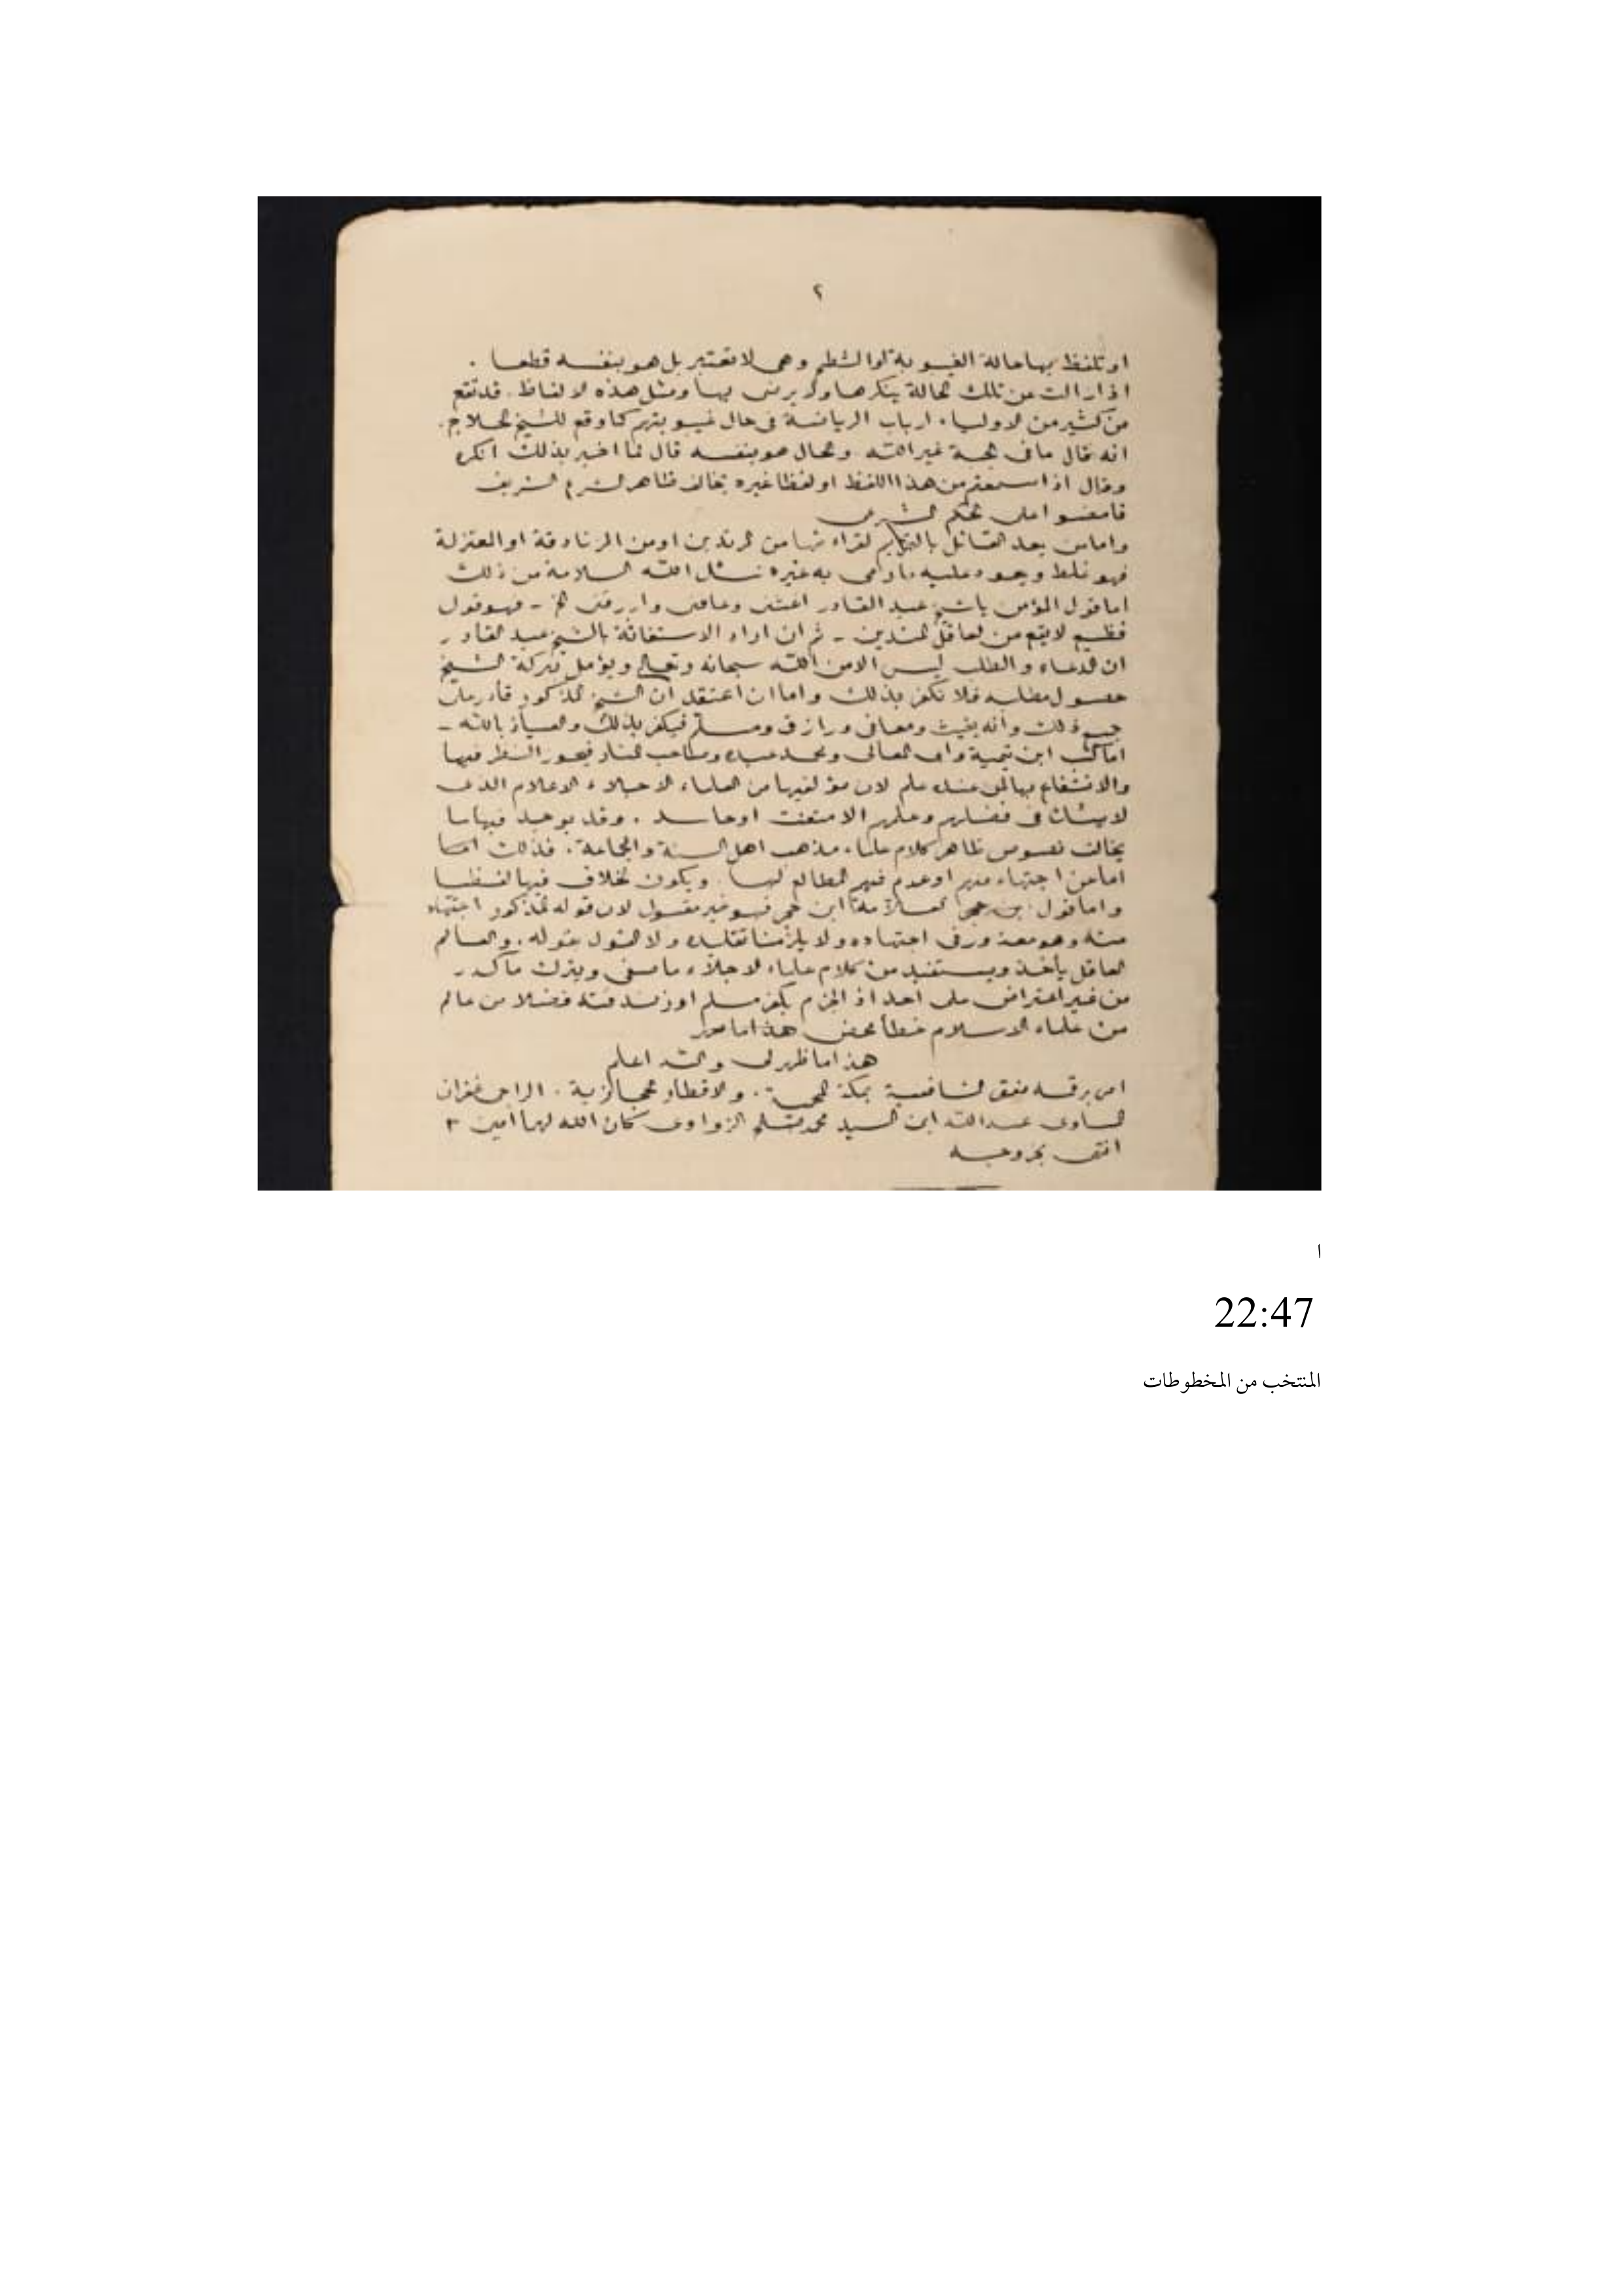 ٢
او تلفظ بها حالة الغيبوبة او الشطح وهى لا تعتبر بل هو بنفسه قطعا .
اذا زالت من تلك الحالة ينكرها ولا يرضى بها ومثل هذه الالفاظ . قد تقع
من كثير من الاولياء . ارباب الرياضة فى حال غيبوبتهم كما وقع للشيخ الحلاج .
انه قال ما فى الجبة غير الله والحال هو بنفسه قال لما اخبر بذلك انكره
وقال اذا سمعتم من هذا اللفظ او لفظا غيره يخالف ظاهر الشرع الشريف
فامضوا على الحكم الشرعى
واما من يعد القائل من المرتدين او من الزنادقة او المعتزلة
فهو غلط عليه ما رمى به غيره نسئل الله السلامة من ذلك
اما قول المؤمن يا شيخ عبد القادر اغثنى وعافنى وارزقنى الخ - فهو قول
فظيع لا يقع من العاقل المتدين - ثم ان اراد الاستغاثة بالشيخ عبد القادر
ان الدعاء والطلب ليس الا من الله سبحانه وتعالى ويؤمل ببركة الشيخ
حصول مطلبه فلا نكفر بذلك واما ان اعتقد ان الشيخ المذكور قادر على
جميع ذلك وانه يغيث ومعافى ورازق ومسلم فيكفر بذلك والعياذ بالله -
اما كتب ابن تيمية وابى المعالى ومحمد عبده وصاحب المنار فيجوز النظر فيها
والانتفاع بها لمن عنده علم لان مؤلفيها من العلماء الاجلاء الاعلام الذى
لا يشك فى فضلهم وعلمهم الا متعنت او حاسد . وقد يوجد فيها ما
يخالف نصوص ظاهر كلام علماء مذهب اهل السنة والجماعة . فذلك
اما من اجتهاد منهم او عدم فهم المطالع لها ويكون الخلاف فيها لفظيا
واما قول ابن حجر العلامة ابن حجر فهو غير مقبول لان قوله المذكور اجتهاد
منه وهو معذور فى اجتهاده ولا يلزمنا تقليده ولا القول بقوله . والعالم
العاقل يأخذ ويستفيد من كلام علماء الاجلاء ما صفى ويترك ما كدر
من غير اعتراض على احد اذ الجزم بكفر مسلم او زندقته فضلا من عالم
من علماء الاسلام خطأ محض هذا ما
هذا ما ظهر لى والله اعلم
امر برقمه مفتى الشافعية بمكة المحمية . والاقطار الحجازية . الراجى غفران
المساوى عبد الله ابن السيد محمد صالح الزواوى كان الله لهما امين ٣
انتهى بحروفه
ا
22:47
المنتخب من المخطوطات